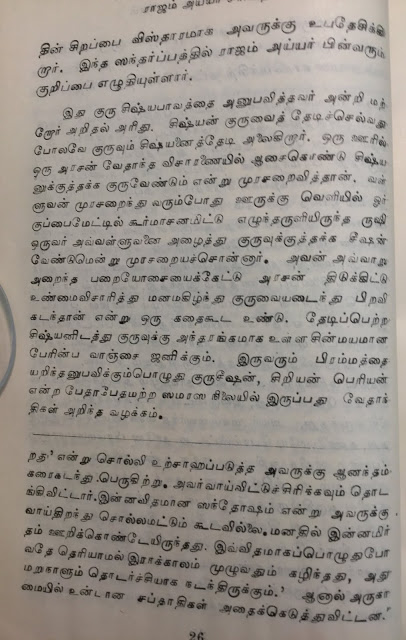 ராஜம் அய்யர்
தின் சிறப்பை விஸ்தாரமாக அவருக்கு உபதேசிக்கி
றார். இந்த ஸந்தர்ப்பத்தில் ராஜம் அய்யர் பின்வரும்
குறிப்பை எழுதியுள்ளார்.
இது குரு சிஷ்யபாவத்தை அனுபவித்தவர் அன்றி மற்
றோர் அறிதல் அரிது. சிஷ்யன் குருவைத் தேடிச்செல்வது
போலவே குருவும் சிஷ்யனைத்தேடி அலைகிறார். ஒரு ஊரில்
ஒரு அரசன் வேதாந்த விசாரணையில் ஆசைகொண்டு சிஷ்ய
னுக்குத்தக்க குருவேண்டும் என்று முரசறைவித்தான். வள்
ளுவன் முரசறைந்து வரும்போது ஊருக்கு வெளியில் ஓர்
குப்பைமேட்டில் கூர்மாசனமிட்டு எழுந்தருளியிருந்த ருஷி
ஒருவர் அவ்வள்ளுவனை அழைத்து குருவுக்குத்தக்க சீஷன்
வேண்டுமென்று முரசறையச்சொன்னார். அவன் அவ்வாறு
அறைந்த பறையோசையைக்கேட்டு அரசன் திடுக்கிட்டு
உண்மைவிசாரித்து மனமகிழ்ந்து குருவையடைந்து பிறவி
கடந்தான் என்று ஒரு கதைகூட உண்டு. தேடிப்பெற்ற
சிஷ்யனிடத்து குருவுக்கு அந்தரங்கமாக உள்ள சின்மயமான
பேரின்ப வாஞ்சை ஜனிக்கும். இருவரும் பிரம்மத்தை
யறிந்தனுபவிக்கும்பொழுது குருசீஷன், சிறியன் பெரியன்
என்ற பேதாபேதமற்ற ஸமரஸ நிலையில் இருப்பது வேதாந்
திகள் அறிந்த வழக்கம்.
றது' என்று சொல்லி உற்சாஹப்படுத்த அவருக்கு ஆனந்தம்
கரைகடந்து பெருகிற்று. அவர்வாய்விட்டுச்சிரிக்கவும் தொட
ங்கிவிட்டார். இன்னவிதமான ஸந்தோஷம் என்று அவருக்கு
வாய்திறந்து சொல்லமட்டும் கூடவில்லை. மனதில் இன்னமிர்
தம் ஊறிக்கொண்டேயிருந்தது. இவ்விதமாகப்பொழுதுபோ
வதே தெரியாமல் இராக்காலம் முழுவதும் கழிந்தது, அது
மறுநாளும் தொடர்ச்சியாக நடந்திருக்கும்.' ஆனால் அருகா
மையில் உண்டான சப்தாதிகள் அதைக்கெடுத்துவிட்டன."
26